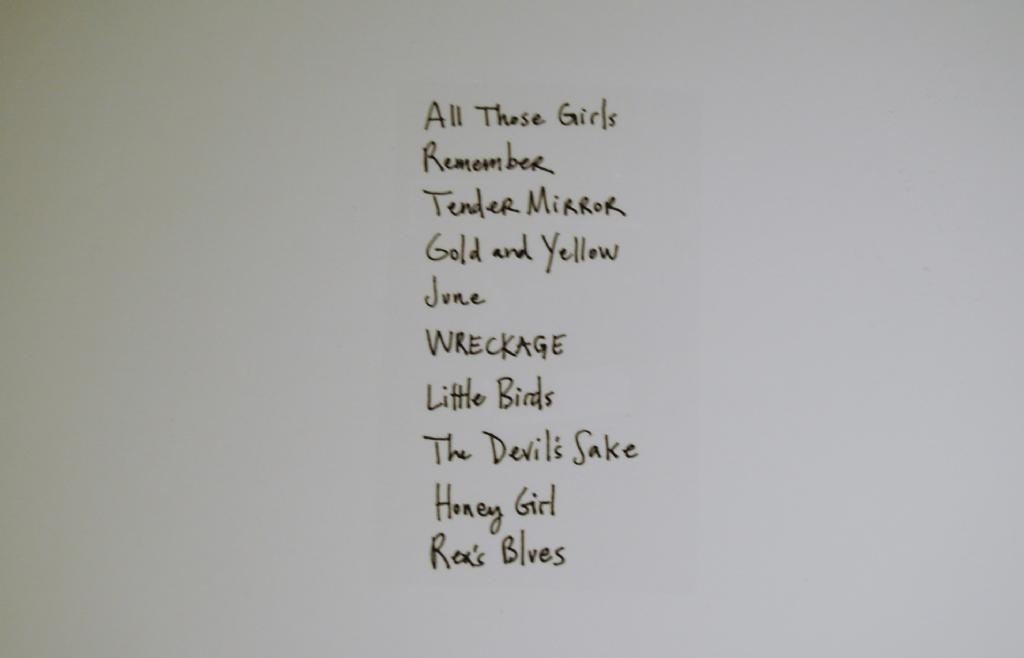 All Those Girls
Remember
Tender Mirror
Gold and Yellow
June
WRECKAGE
Little Birds
The Devil's Sake
Honey Girl
Rex's Blues